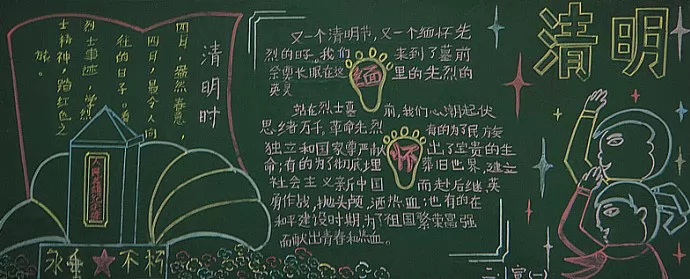 清明时
四月，盎然春意，
四月，最令人向
往的日子。看
烈士事迹，学烈
士精神，踏红色之
旅。
人民英雄纪念碑
永垂不朽
又一个清明节，又一个缅怀先
烈的日子。我们来到了墓前
祭奠长眠在这里的先烈的
英灵
缅
站在烈士墓前，我们心潮起伏
思绪万千，革命先烈有的为了民族
独立和国家尊严献出了宝贵的生
命；有的为了彻底埋葬旧世界，建立
社会主义新中国而赴后继英
勇作战，抛头颅，洒热血；也有的在
和平建设时期，为了祖国繁荣富强
而献出青春和热血。
怀
清明
宣(一)